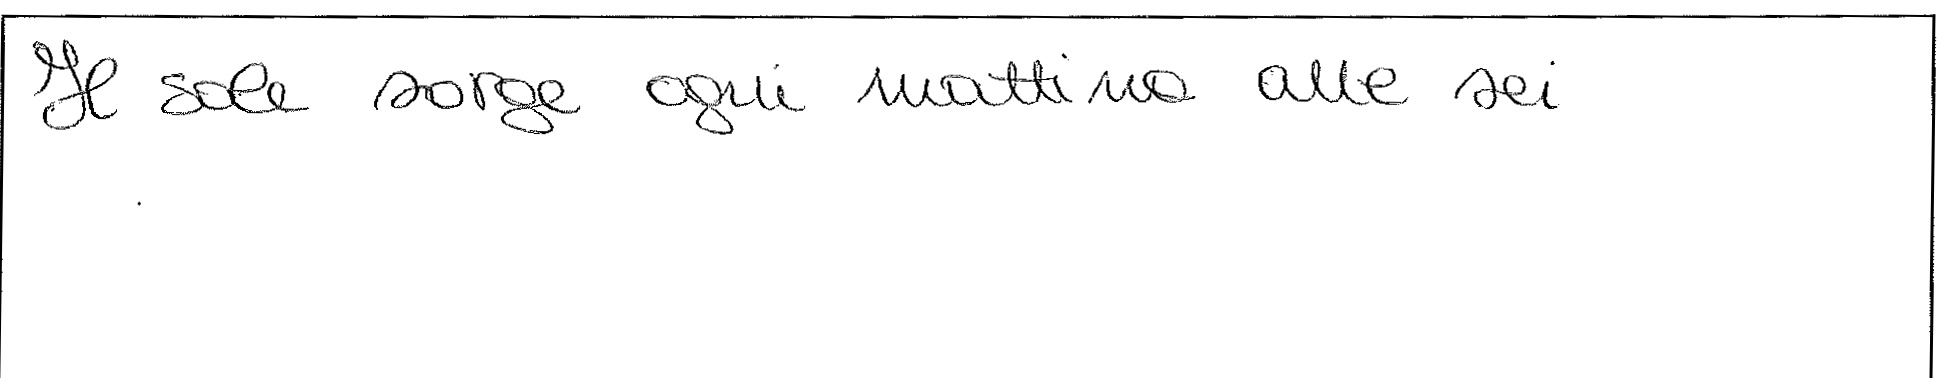 Il sole sorge ogni mattino alle sei